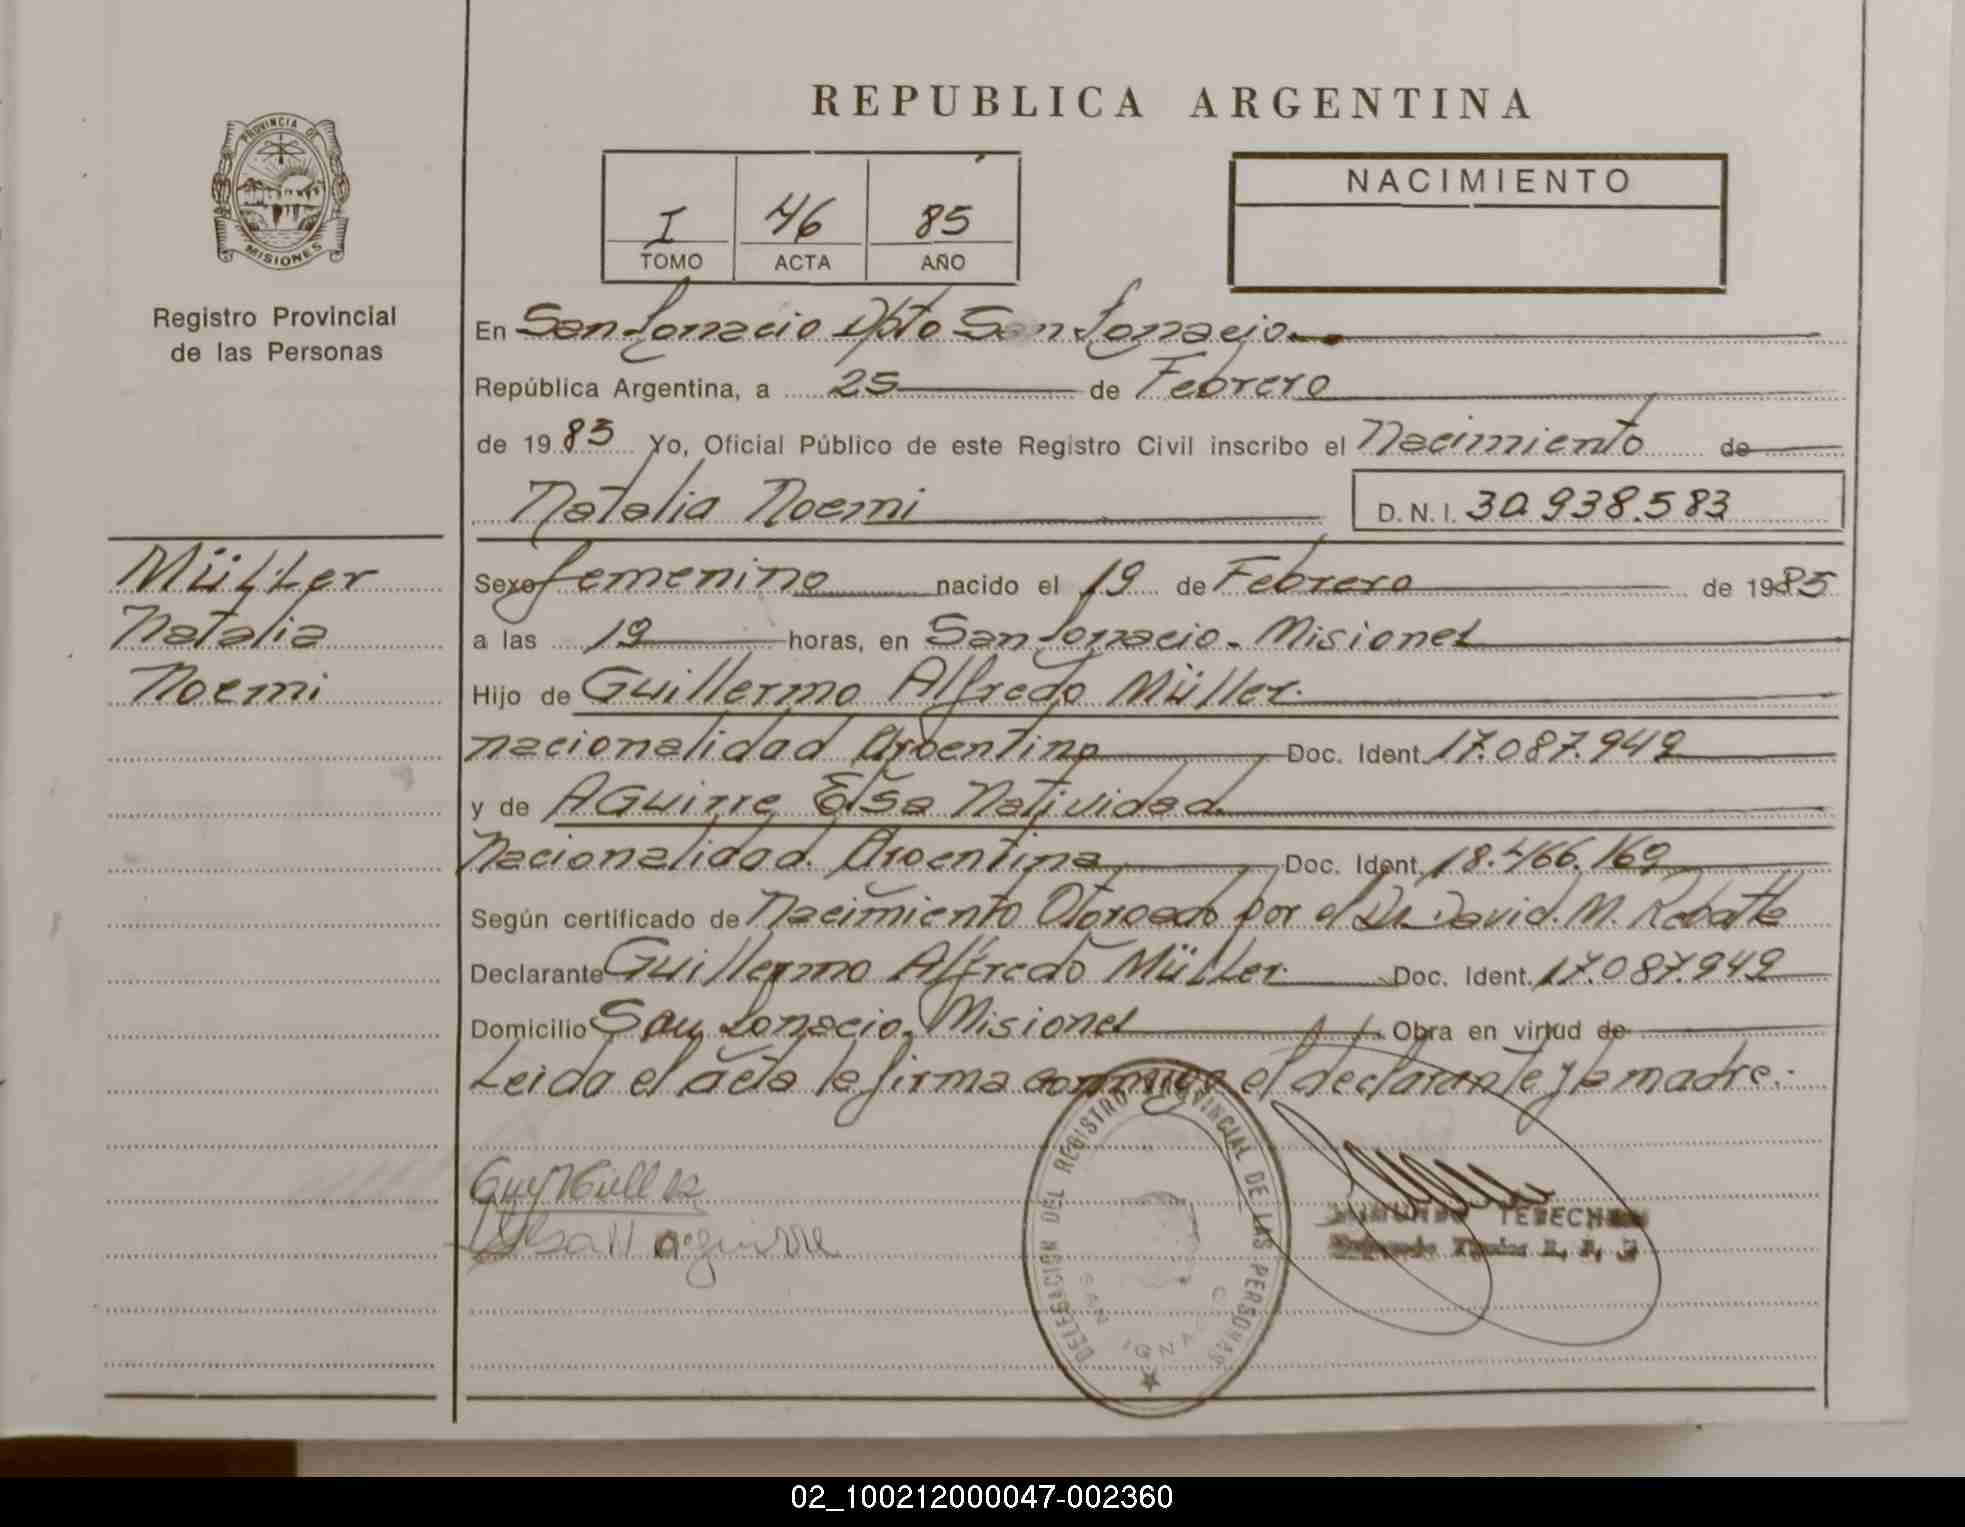 REPUBLICA ARGENTINA
PROVINCIA DE
MISIONES
Registro Provincial
de las Personas
I 46 85
TOMO ACTA AÑO
NACIMIENTO
En San Ignacio Dpto San Ignacio.
República Argentina, a 25 de Febrero
de 1985 Yo, Oficial Público de este Registro Civil inscribo el Nacimiento de
Natalia Noemi D.N.I. 30.938.583
Müller
Natalia
Noemi
Sexo femenino nacido el 19 de Febrero de 1985
a las 19 horas, en San Ignacio - Misiones
Hijo de Guillermo Alfredo Müller.
nacionalidad Argentina Doc. Ident. 17.087.949
y de AGuirre Elsa Natividad
Nacionalidad. Argentina Doc. Ident. 18.466.169
Según certificado de Nacimiento Otorgado por el Dr. David. M.
Declarante Guillermo Alfredo Müller. Doc. Ident. 17.087.949
Domicilio San Ignacio. Misiones Obra en virtud de
Leida el acta la firma conmigo el declarante y la madre.-
Aguirre
DELEGACION DEL REGISTRO PROVINCIAL DE LAS PERSONAS
SAN IGNACIO
02_100212000047-002360